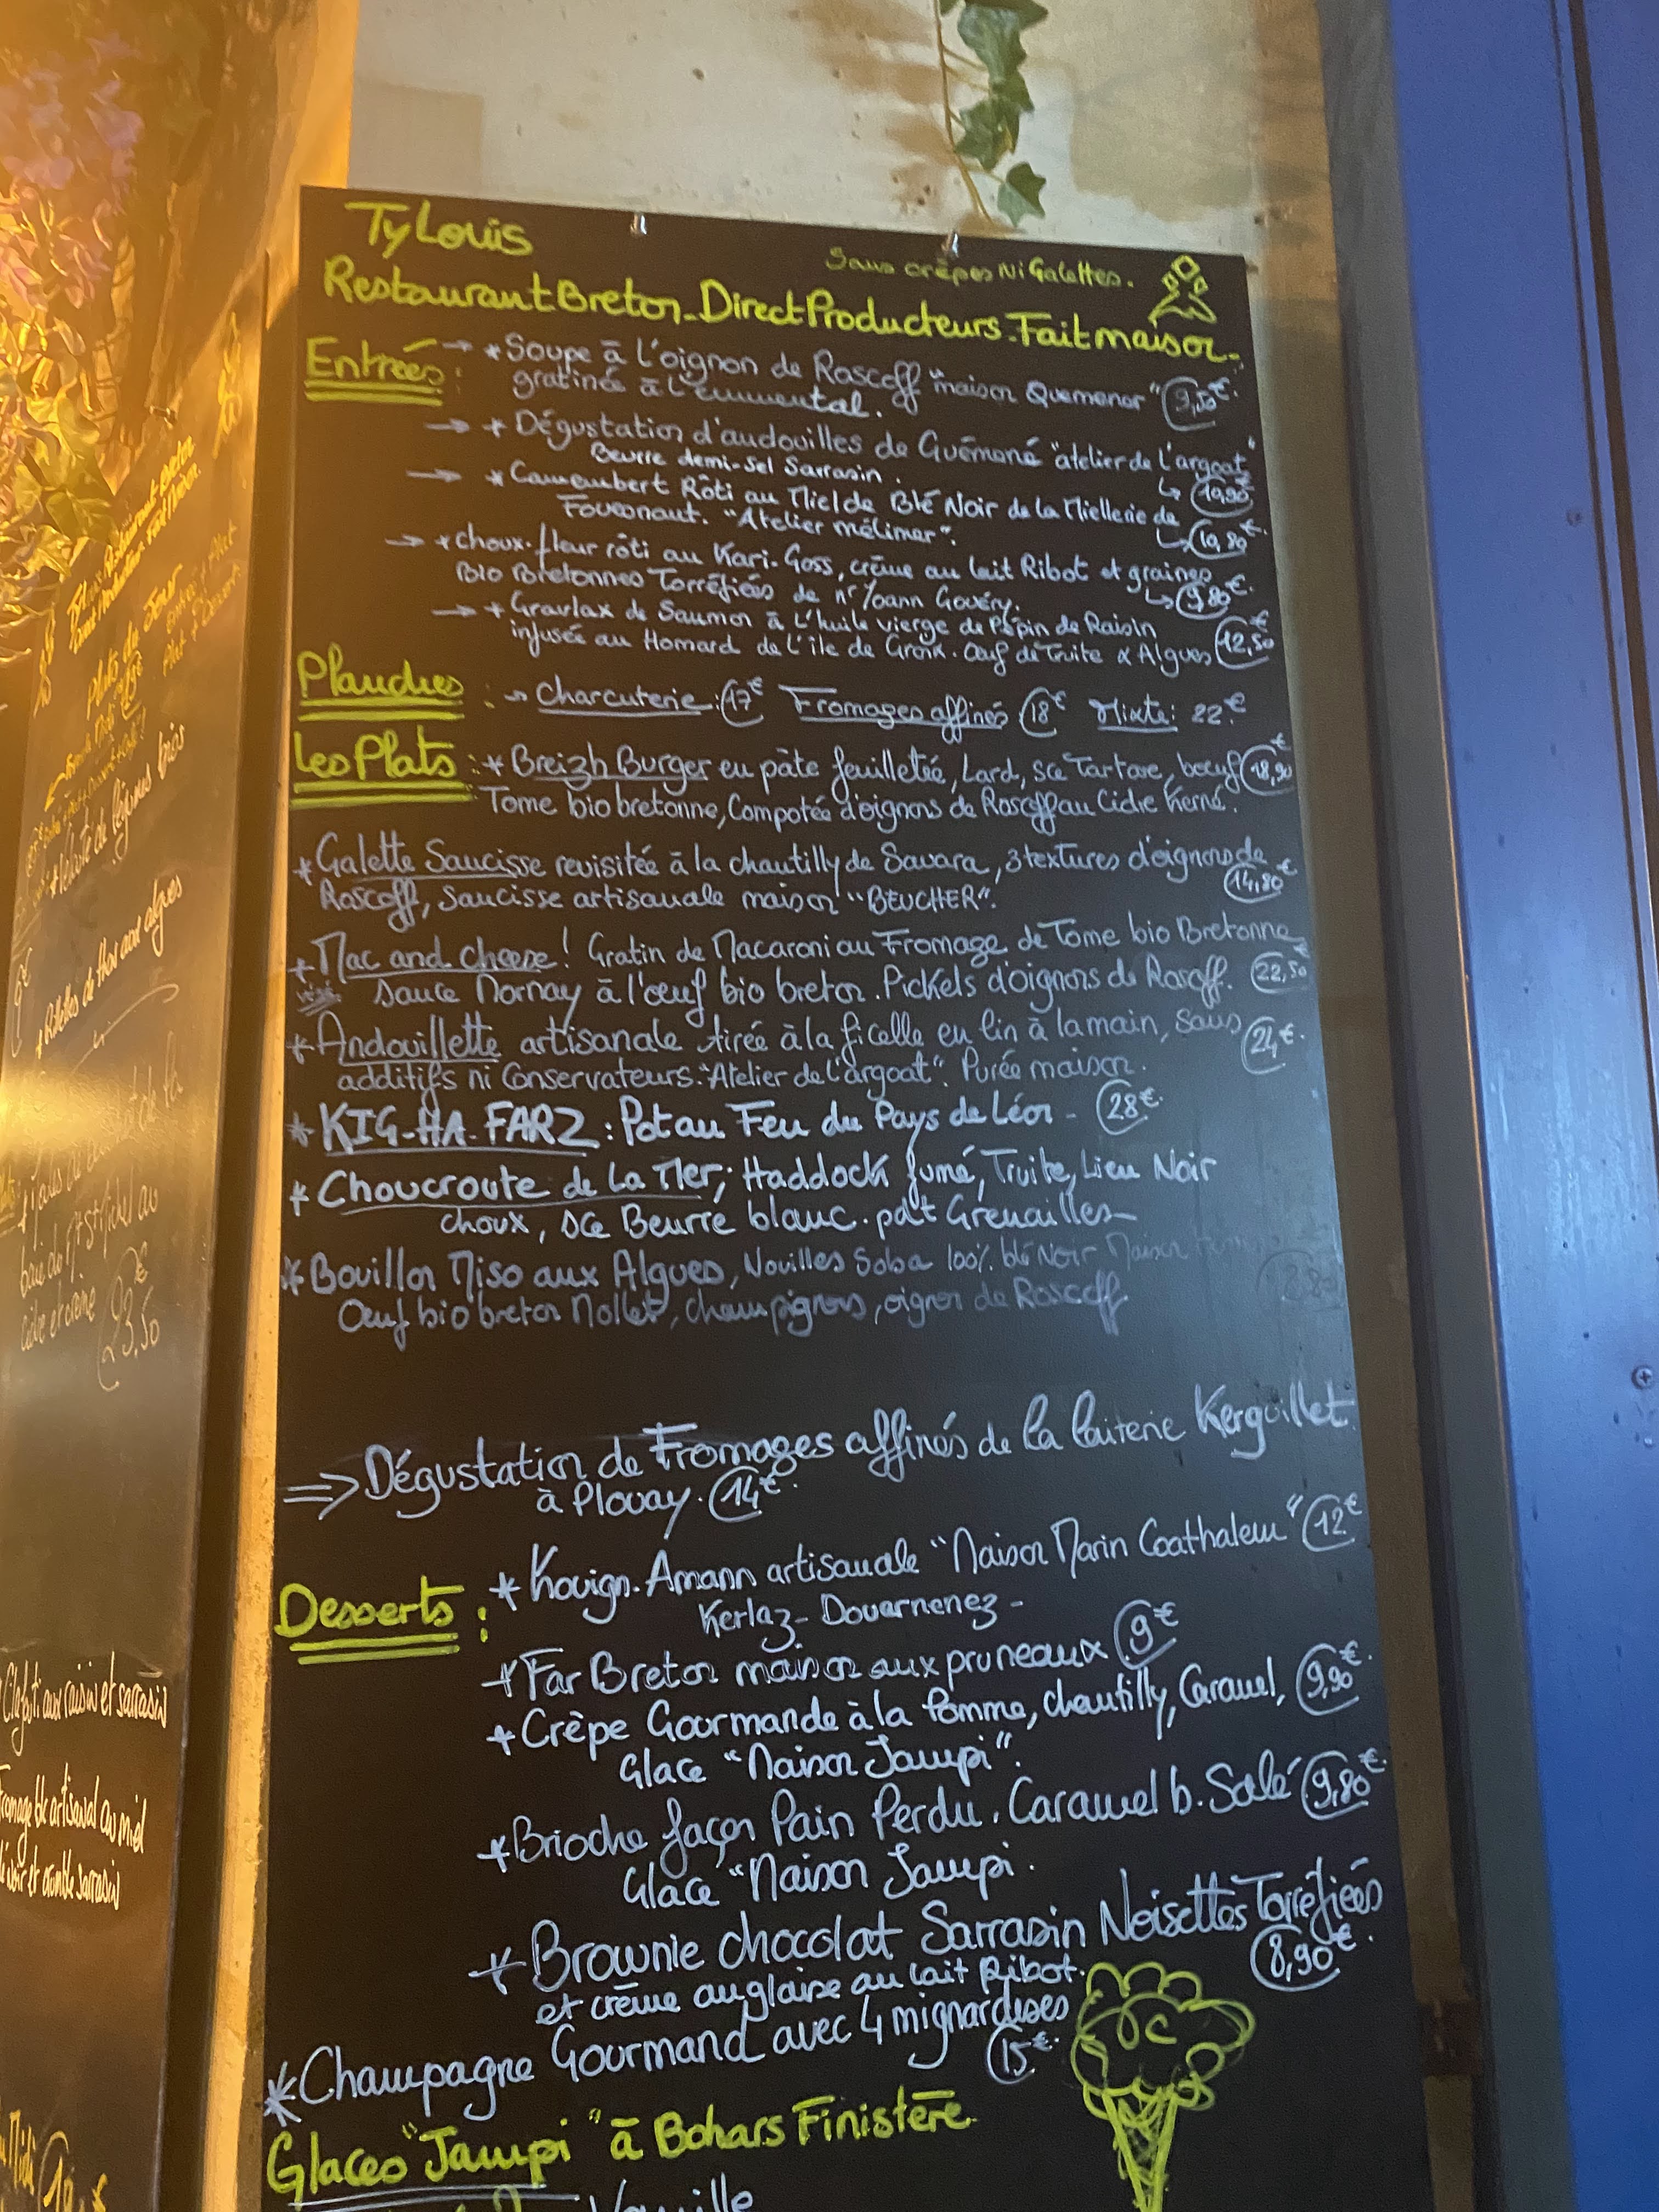 Ty Louis
Sans crêpes Ni Galettes.
Restaurant Breton_Direct Producteurs_Fait maison.
Entrées : → * Soupe à l'oignon de Roscoff "maison Quemener" 9,50€.
gratinée à l'emmental.
→ * Dégustation d'andouilles de Guémené "atelier de l'argoat"
Beurre demi-sel Sarrasin. ↳ 10,90€
→ * Camembert Rôti au Miel de Blé Noir de la Miellerie de
"Atelier mélimer". ↳ 10,80€.
→ * Choux-fleur rôti au Kari-Goss, crème au lait Ribot et graines
Bio Bretonnes Torréfiées de Mr Yoann Govéry. ↳ 9,80€.
→ * Gravlax de Saumon à l'huile vierge de Pépin de Raisin
infusée au Homard de l'île de Groix. Oeuf de Truite & Algues 12,50€
Planches : → Charcuterie : 17€ Fromages affinés 18€ Mixte : 22€
Les Plats : * Breizh Burger en pâte feuilletée, Lard, sce Tartare, boeuf 18,90€
Tome bio bretonne, Compotée d'oignons de Roscoff au Cidre Kerné.
* Galette Saucisse revisitée à la chantilly de Savara, 3 textures d'oignons de
Roscoff, Saucisse artisanale maison "BEUCHER". 14,80€
* Mac and cheese ! Gratin de Macaroni au Fromage de Tome bio Bretonne
Sauce Mornay à l'oeuf bio breton. Pickels d'oignons de Rosoff. 22,50€
* Andouillette artisanale tirée à la ficelle en lin à la main, Sans
additifs ni Conservateurs. "Atelier de l'argoat". Purée maison. 24€.
* KIG-HA-FARZ : Pot au Feu du Pays de Léon - 28€.
* Choucroute de La Mer ; Haddock fumé, Truite, Lieu Noir
choux, sce Beurre blanc. pdt Grenailles
* Bouillon Miso aux Algues, Nouilles Soba 100% blé Noir Maison
Oeuf bio breton Mollet, champignons, oignon de Roscoff
⇒ Dégustation de Fromages affinés de la laiterie Kerguillet
à Plouay. 14€.
Desserts : * Kouign-Amann artisanale "Maison Marin Coathalem" 12€
Kerlaz - Douarnenez -
* Far Breton maison aux pruneaux 9€
* Crêpe Gourmande à la Pomme, chantilly, Caramel, 9,90€.
Glace "Maison Jampi".
* Brioche façon Pain Perdu. Caramel b. Salé 9,80€.
Glace "Maison Jampi.
* Brownie chocolat Sarrasin Noisettes Torréfiées
et crème anglaise au lait Ribot. 8,90€.
* Champagne Gourmand avec 4 mignardises
15€.
Glaces "Jampi" à Bohars Finistère
Vanille
Plats du Jour
Velouté de légumes bios
* Rillettes de thon aux algues
cidre et crème 23,50€
Clafoti aux raisin et sarrasin
Fromage blc artisanal au miel